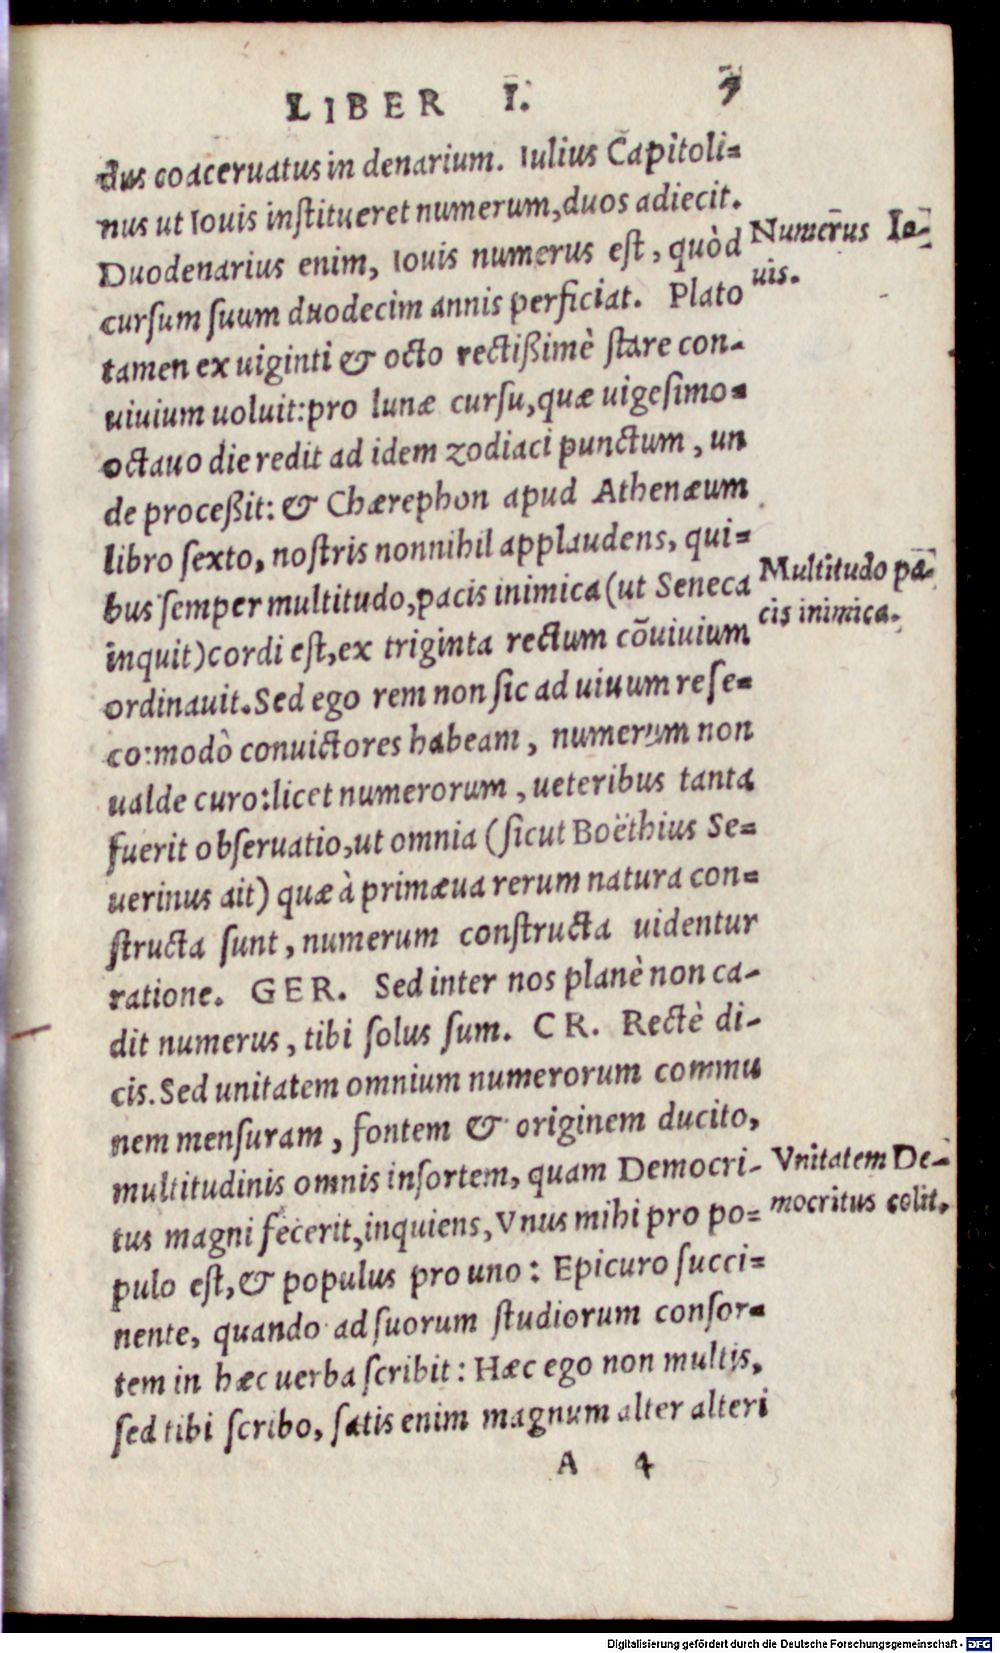 LIBER I. 7
dus coaceruatus in denarium. Iulius Capitoli=
nus ut Iouis inſtitueret numerum, duos adiecit.
Duodenarius enim, Iouis numerus eſt, quòd
Numerus Io-
uis.
curſum ſuum duodecim annis perficiat. Plato
tamen ex uiginti & octo rectißimè ſtare con-
uiuium uoluit: pro lunæ curſu, quæ uigeſimo=
octauo die redit ad idem zodiaci punctum, un
de proceßit: & Chærephon apud Athenæum
libro ſexto, noſtris nonnihil applaudens, qui=
bus ſemper multitudo, pacis inimica (ut Seneca
Multitudo pa-
cis inimica.
inquit) cordi eſt, ex triginta rectum cōuiuium
ordinauit. Sed ego rem non ſic ad uiuum reſe=
co: modò conuictores habeam, numerum non
ualde curo: licet numerorum, ueteribus tanta
fuerit obſeruatio, ut omnia (ſicut Boëthius Se=
uerinus ait) quæ à primæua rerum natura con=
ſtructa ſunt, numerum conſtructa uidentur
ratione. GER. Sed inter nos planè non ca-
dit numerus, tibi ſolus ſum. CR. Rectè di-
cis. Sed unitatem omnium numerorum commu
nem menſuram, fontem & originem ducito,
multitudinis omnis inſortem, quam Democri-
Vnitatem De-
mocritus colit.
tus magni fecerit, inquiens, Vnus mihi pro po=
pulo eſt, & populus pro uno: Epicuro ſucci=
nente, quando ad ſuorum ſtudiorum conſor=
tem in hæc uerba ſcribit: Hæc ego non multis,
ſed tibi ſcribo, ſatis enim magnum alter alteri
A 4
Digitalisierung gefördert durch die Deutsche Forschungsgemeinschaft - DFG